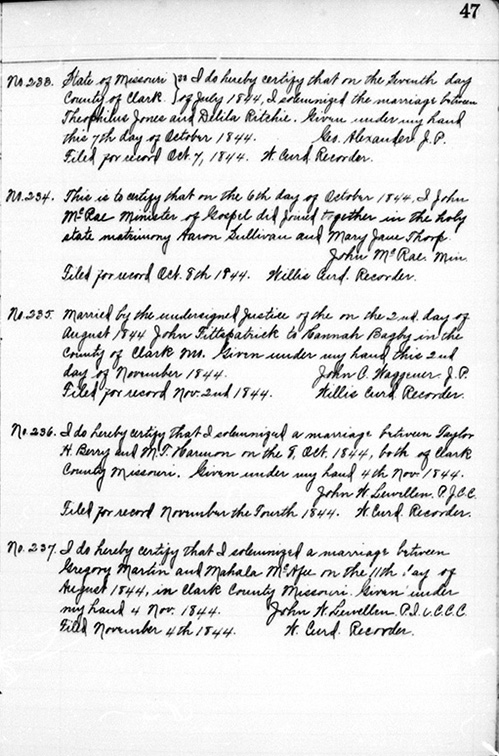 47
No. 233. State of Missouri } ss I do hereby certify that on the Seventh day
County of Clark. } of July 1844, I solemnized the marriage between
Theophilus Jones and Delila Ritchie. Given under my hand
this 7th day of October 1844. Geo. Alexander J.P.
Filed for record Oct. 7, 1844. W. Curd Recorder.
No. 234. This is to certify that on the 6th day of October 1844, I John
McRae Minister of Gospel did joined together in the holy
state matrimony Aaron Sullivan and Mary Jane Thorp.
John McRae Min.
Filed for record Oct. 8th 1844. Willis Curd. Recorder.
No. 235. Married by the undersigned Justice of the on the 2nd. day of
August 1844 John Fittspatrick to Hannah Bagby in the
County of Clark Mo. Given under my hand this 2nd
day of November 1844. John O. Waggener J.P.
Filed for record Nov. 2nd 1844. Willis Curd Recorder.
No. 236. I do hereby certify that I solemnized a marriage between Taylor
H. Berry and M.T. Harmon on the 8, Oct. 1844, both of Clark
County Missouri. Given under my hand 4th Nov. 1844.
John W. Lewellen. P.J.C.C.
Filed for record November the Fourth 1844. W. Curd. Recorder.
No. 237. I do hereby certify that I solemnized a marriage between
Gregory Martin and Mahala McAfee on the 11th day of
August 1844, in Clark County Missouri. Given under
my hand 4 Nov. 1844. John W. Lewellen.
Filed November 4th 1844. W. Curd. Recorder.